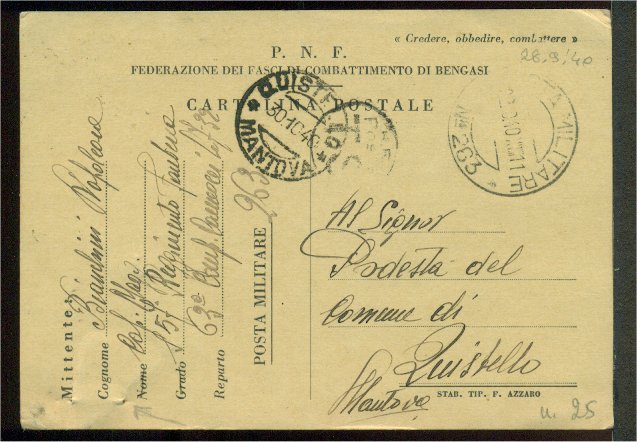 « Credere, obbedire, combattere »
28.9/40
P. N. F.
FEDERAZIONE DEI FASCI DI COMBATTIMENTO DI BENGASI
CARTOLINA POSTALE
QUISTELLO
30.10.40
MANTOVA
MILITARE
N° 263
Mittente:
Cognome
Nome Cap. Magg.
Grado 157° Reggimento Fanteria
Reparto 63a
POSTA MILITARE 263
Al Signor
Podestà del
Comune di
Quistello
Mantova
STAB. TIP. F. AZZARO
n. 25